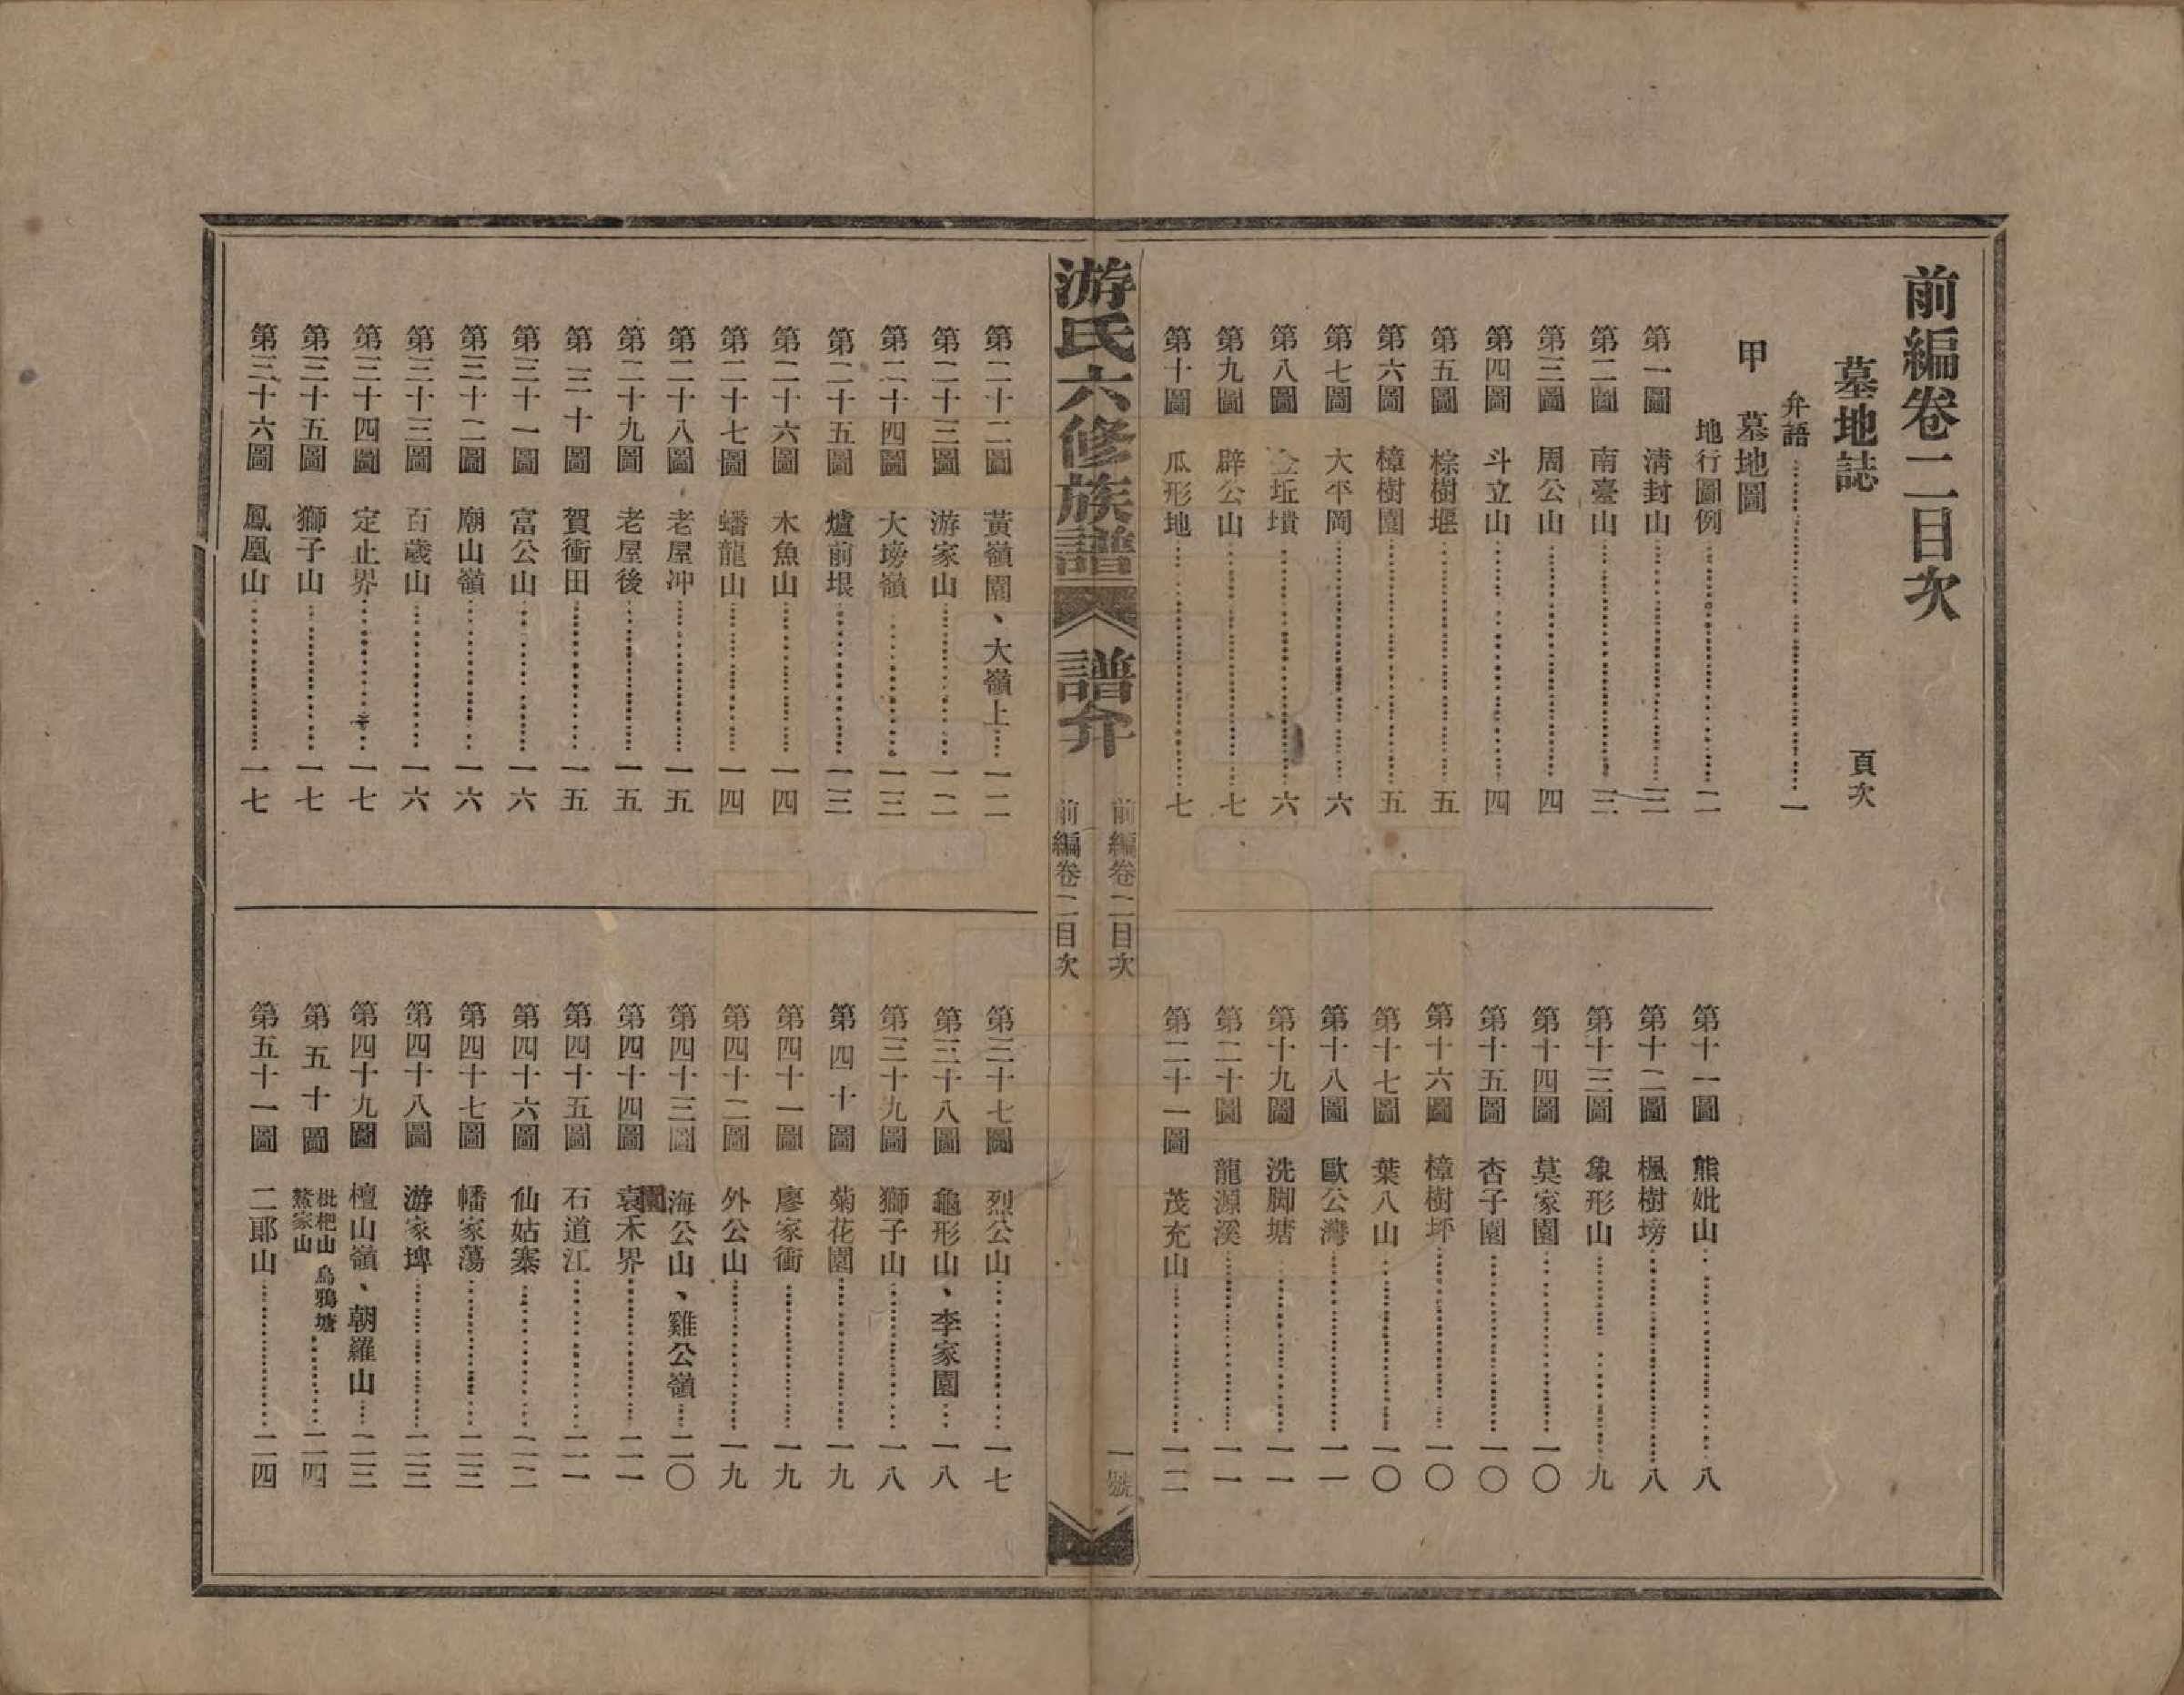 前編卷二目次
墓地誌　頁次
弁語……一
甲　墓地圖
地行圖例……二
第一圖　清封山……三
第二圖　南臺山……三
第三圖　周公山……四
第四圖　斗立山……四
第五圖　棕樹堰……五
第六圖　樟樹園……五
第七圖　大平岡……六
第八圖　坵墳……六
第九圖　辟公山……七
第十圖　瓜形地……七
第十一圖　熊妣山……八
第十二圖　楓樹塝……八
第十三圖　象形山……九
第十四圖　莫家園……一〇
第十五圖　杏子園……一〇
第十六圖　樟樹坪……一〇
第十七圖　葉八山……一〇
第十八圖　歐公灣……一一
第十九圖　洗脚塘……一一
第二十圖　龍源溪……一一
第二十一圖　茂充山……一二
游氏六修族譜
譜弁
前編卷二目次
一號
前編卷二目次
第二十二圖　黃嶺園、大嶺上……一二
第二十三圖　游家山……一二
第二十四圖　大塝嶺……一三
第二十五圖　爐前垠……一三
第二十六圖　木魚山……一四
第二十七圖　蟠龍山……一四
第二十八圖　老屋冲……一五
第二十九圖　老屋後……一五
第三十圖　賀衝田……一五
第三十一圖　富公山……一六
第三十二圖　廟山嶺……一六
第三十三圖　百歲山……一六
第三十四圖　定止界……一七
第三十五圖　獅子山……一七
第三十六圖　鳳凰山……一七
第三十七圖　烈公山……一七
第三十八圖　龜形山、李家園……一八
第三十九圖　獅子山……一八
第四十圖　菊花園……一九
第四十一圖　廖家衝……一九
第四十二圖　外公山……一九
第四十三圖　海公山、雞公嶺……二〇
第四十四圖　袁禾界……二一
第四十五圖　石道江……二一
第四十六圖　仙姑寨……二二
第四十七圖　幡家蕩……二三
第四十八圖　游家埤……二三
第四十九圖　檀山嶺、朝羅山……二三
第五十圖　枇杷山　烏鴉塘　鰲家山……二四
第五十一圖　二郎山……二四